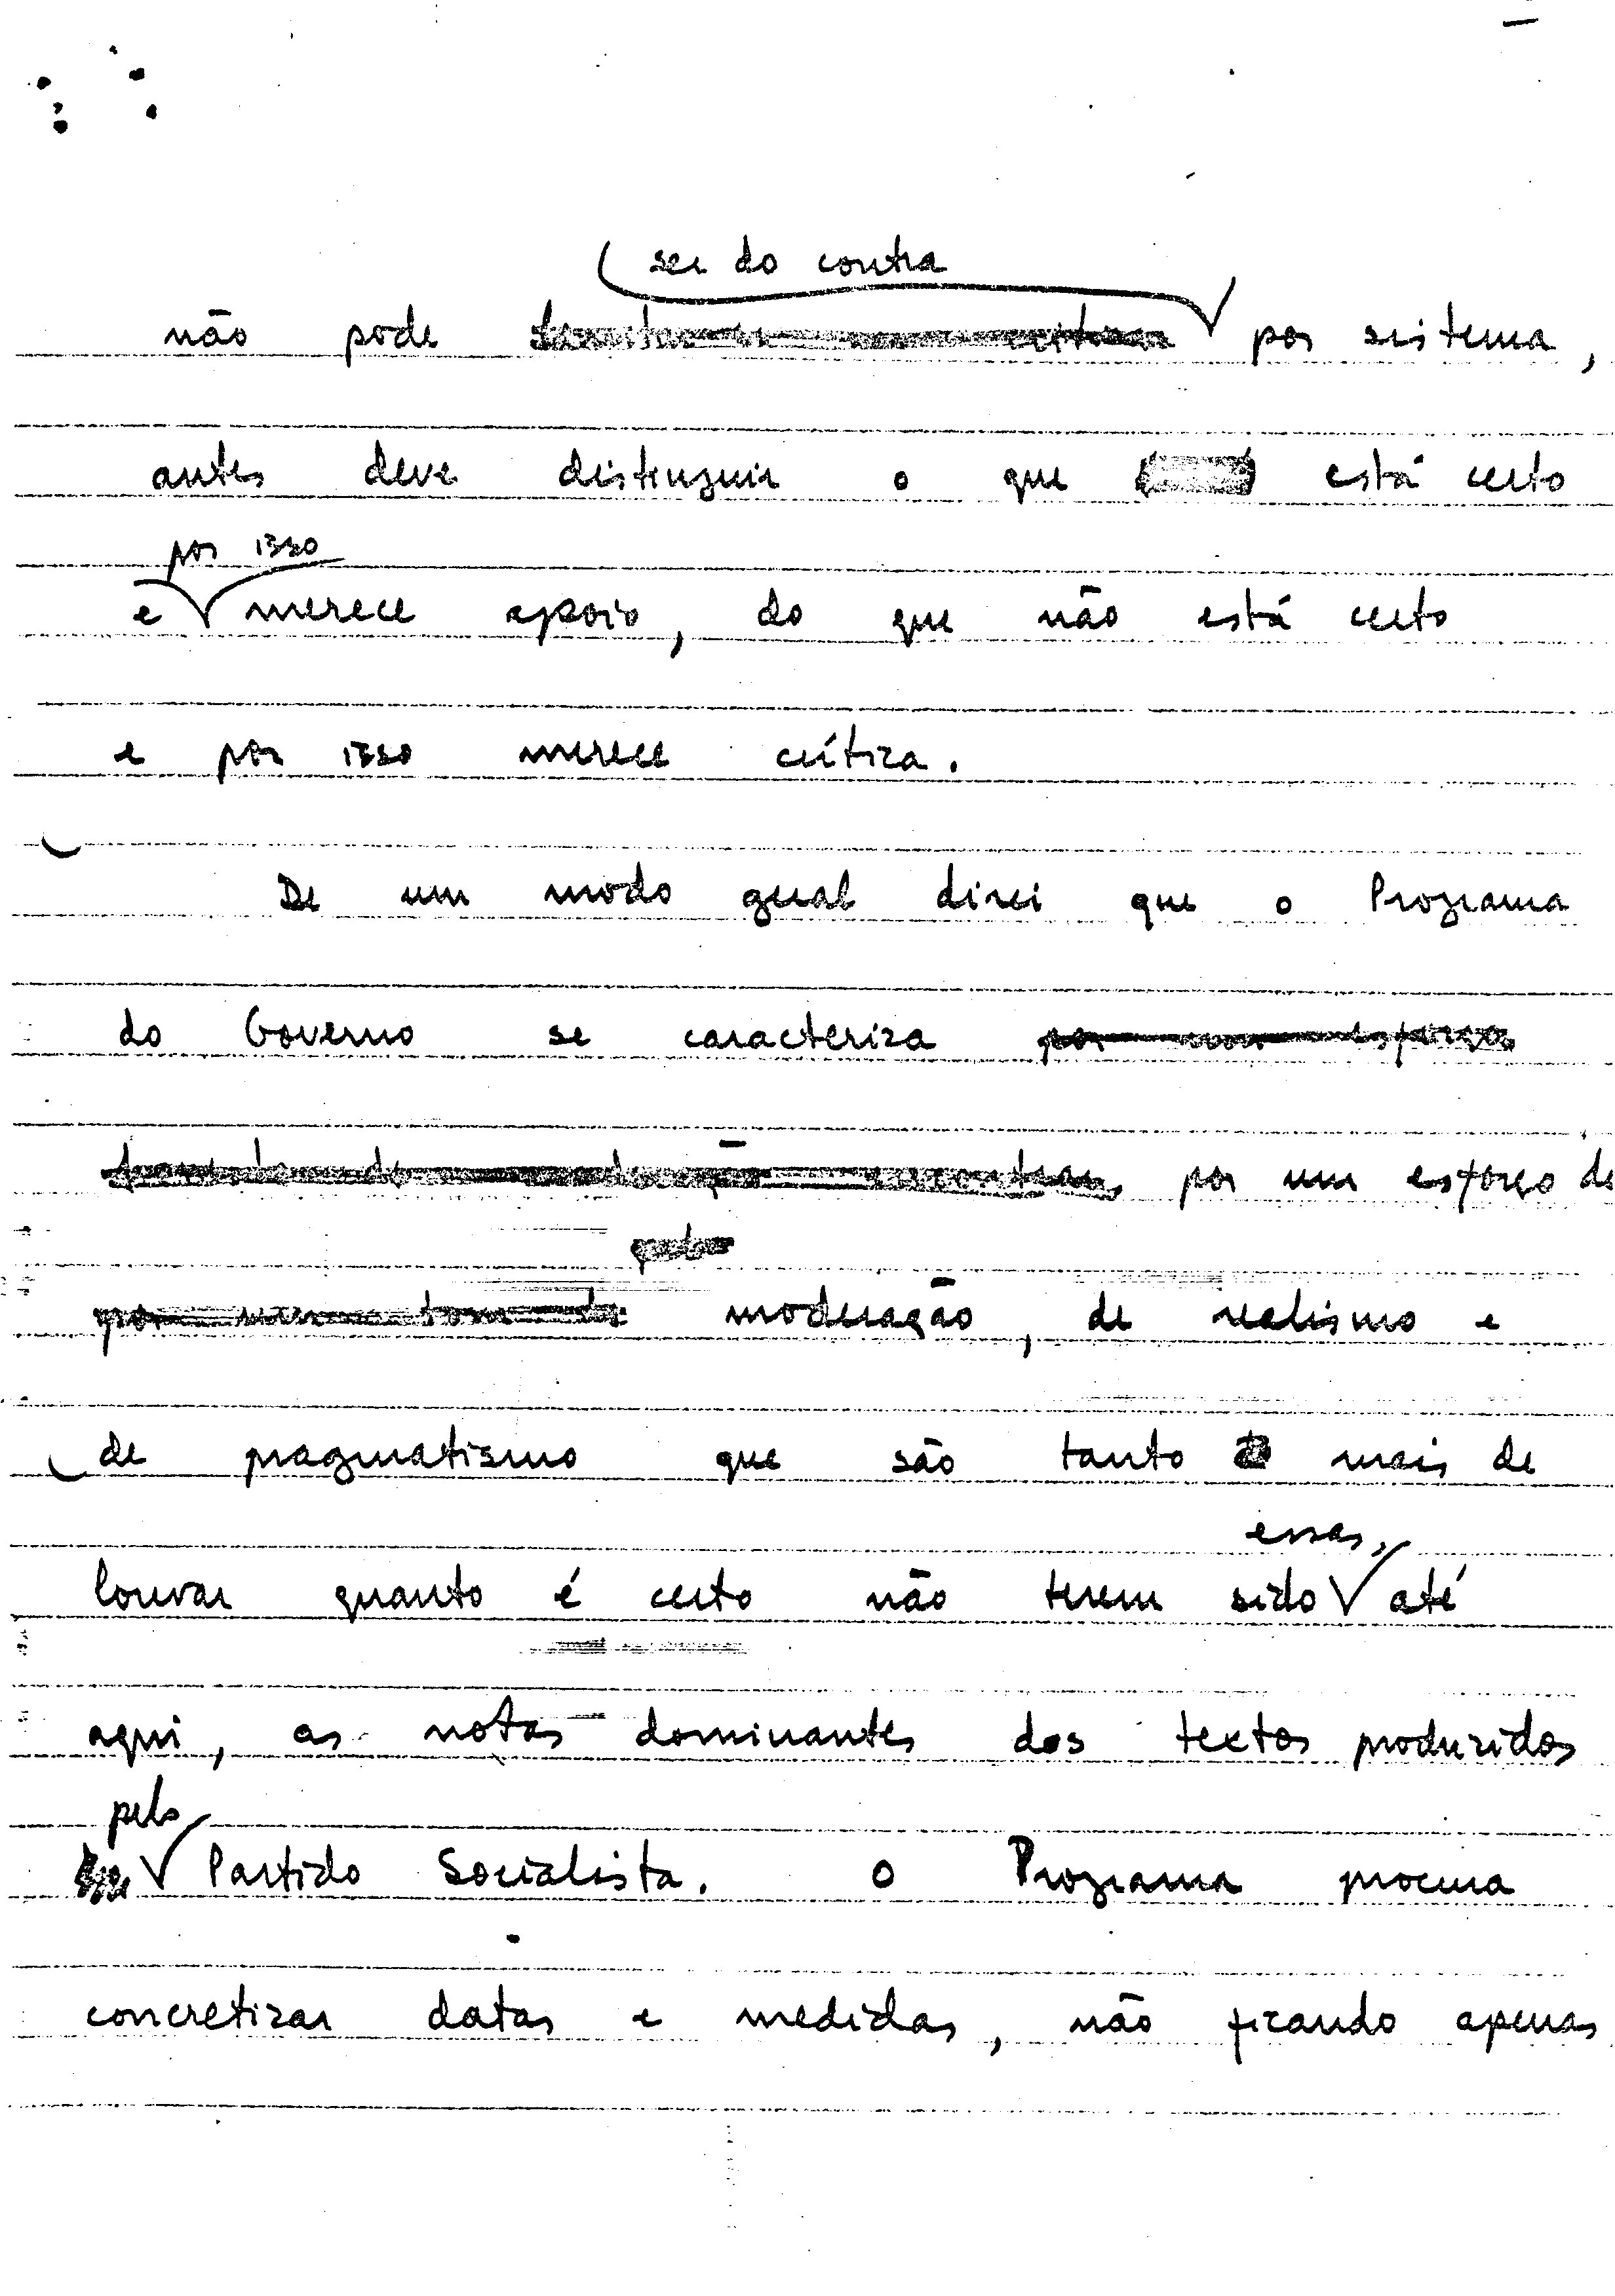 ser do contra
não pode por sistema,
antes deve distinguir o que está certo
por isso
e merece apoio, do que não está certo
e por isso merece crítica.
De um modo geral direi que o Programa
do Governo se caracteriza por um esforço
por um esforço de
moderação, de realismo e
de pragmatismo que são tanto mais de
essas,
louvar quanto é certo não terem sido até
aqui, as notas dominantes dos textos produzidos
pelo
Partido Socialista. O Programa procura
concretizar datas e medidas, não ficando apenas